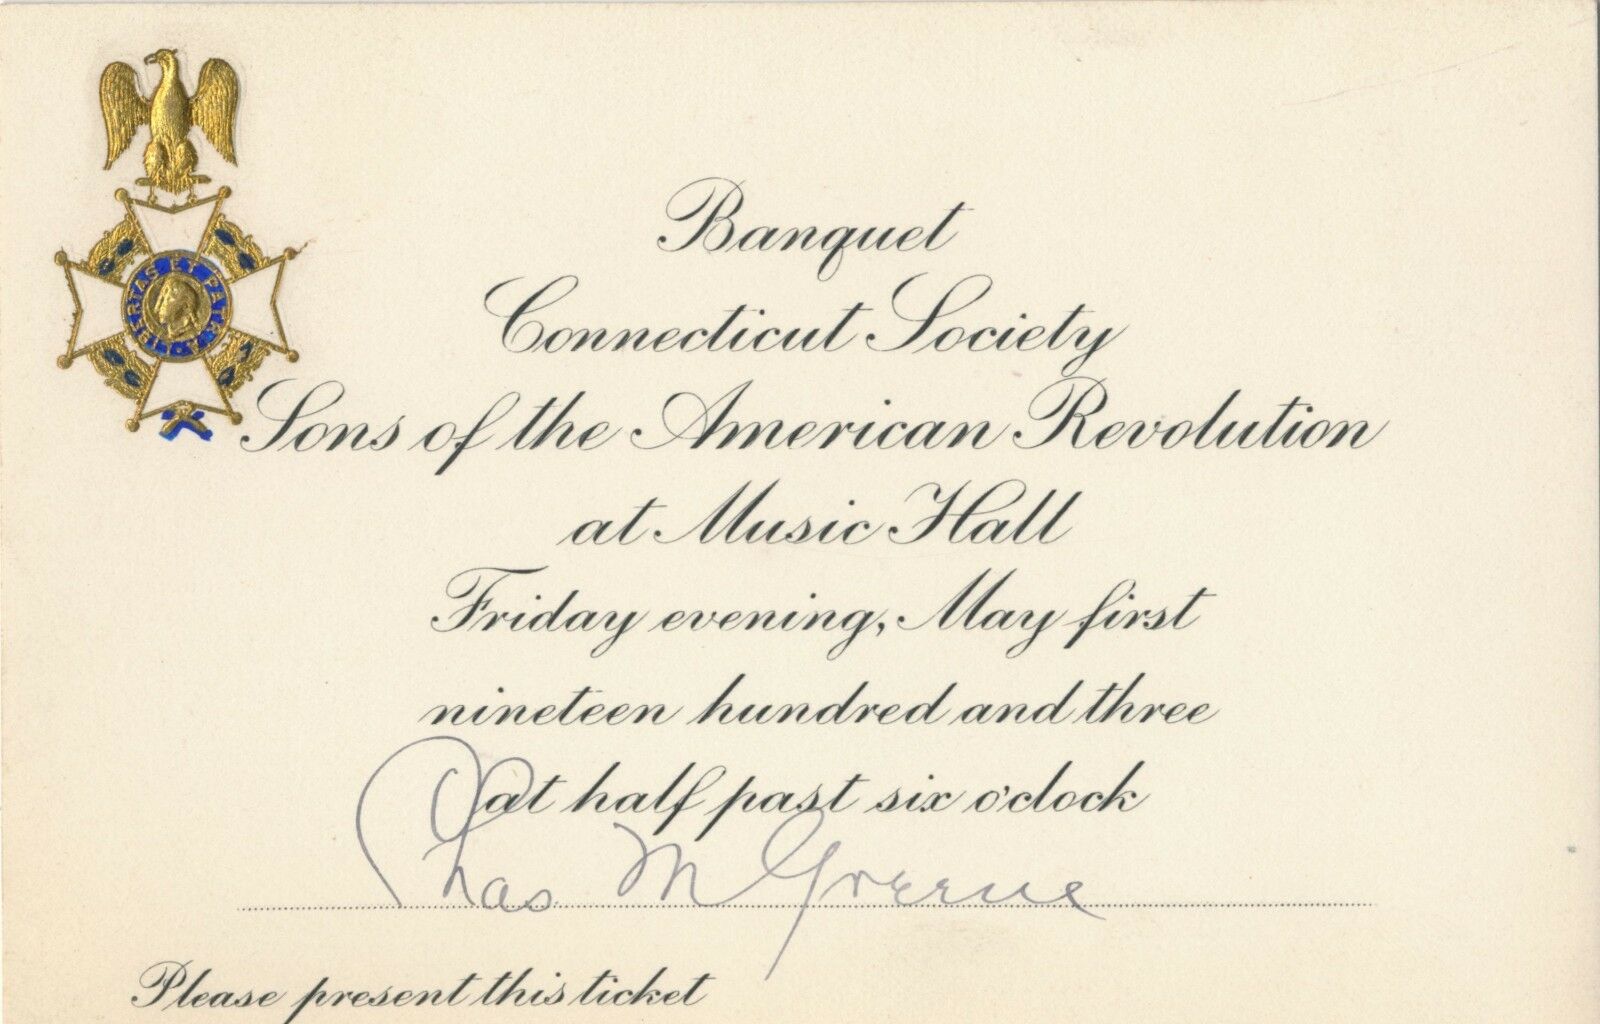 LIBERTAS ET PATRIA
Banquet
Connecticut Society
Sons of the American Revolution
at Music Hall
Friday evening, May first
nineteen hundred and three
at half past six o'clock
Chas M Greene
Please present this ticket